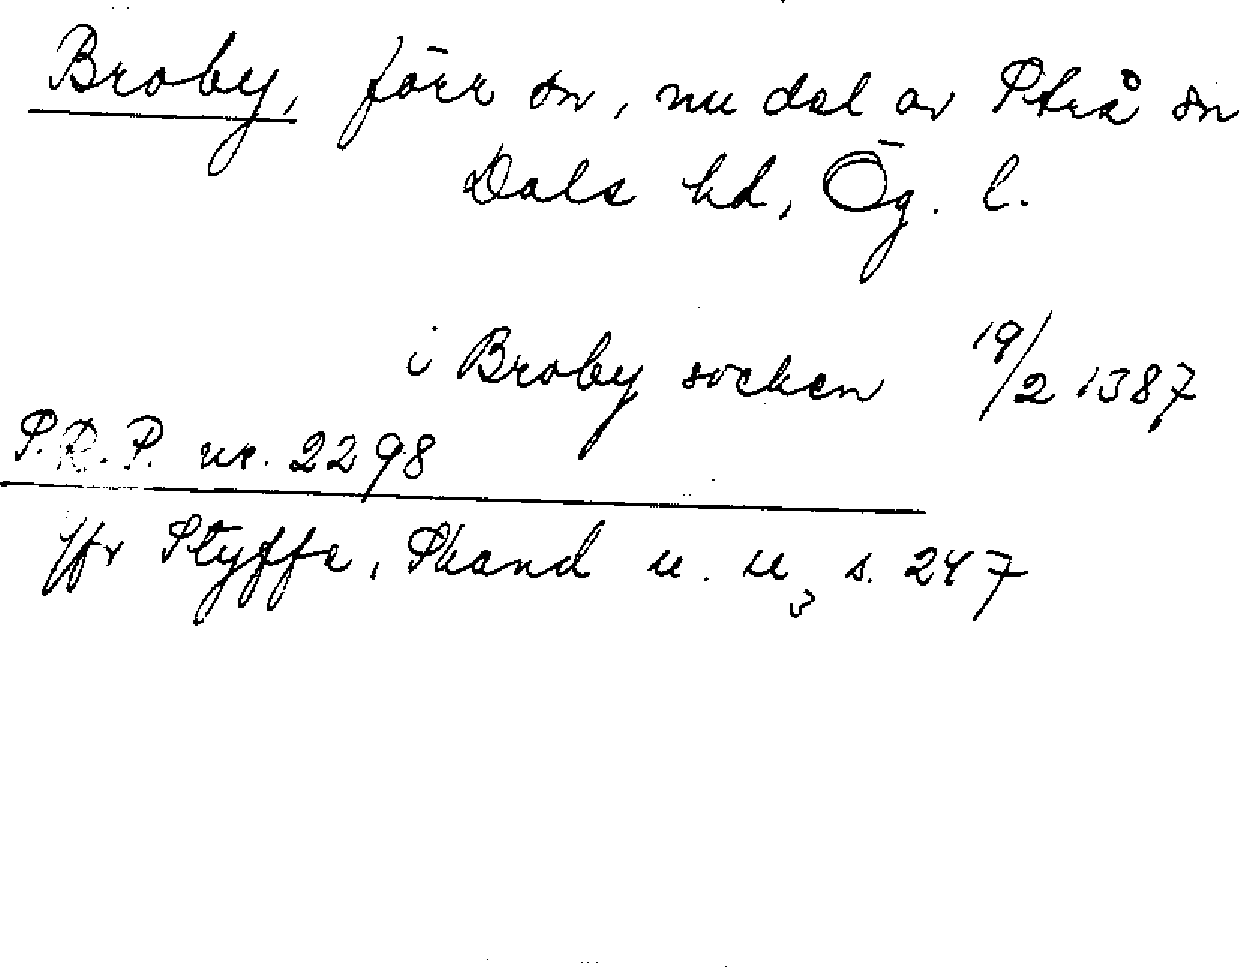 Broby, förr sn, nu del av Strå sn
Dals hd, Ög. l.
i Broby socken 19/2 1387
S.R.P. nr. 2298
Jfr Styffe, Skand u. u3 s. 247